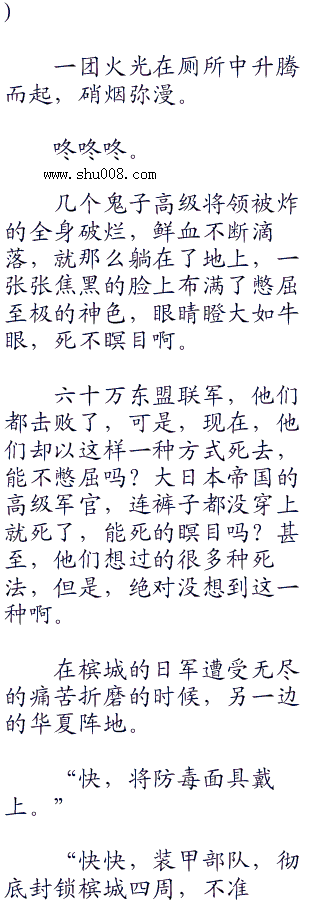 )
一团火光在厕所中升腾
而起，硝烟弥漫。
咚咚咚。
www.shu008.com
几个鬼子高级将领被炸
的全身破烂，鲜血不断滴
落，就那么躺在了地上，一
张张焦黑的脸上布满了憋屈
至极的神色，眼睛瞪大如牛
眼，死不瞑目啊。
六十万东盟联军，他们
都击败了，可是，现在，他
们却以这样一种方式死去，
能不憋屈吗？大日本帝国的
高级军官，连裤子都没穿上
就死了，能死的瞑目吗？甚
至，他们想过的很多种死
法，但是，绝对没想到这一
种啊。
在槟城的日军遭受无尽
的痛苦折磨的时候，另一边
的华夏阵地。
“快，将防毒面具戴
上。”
“快快，装甲部队，彻
底封锁槟城四周，不准